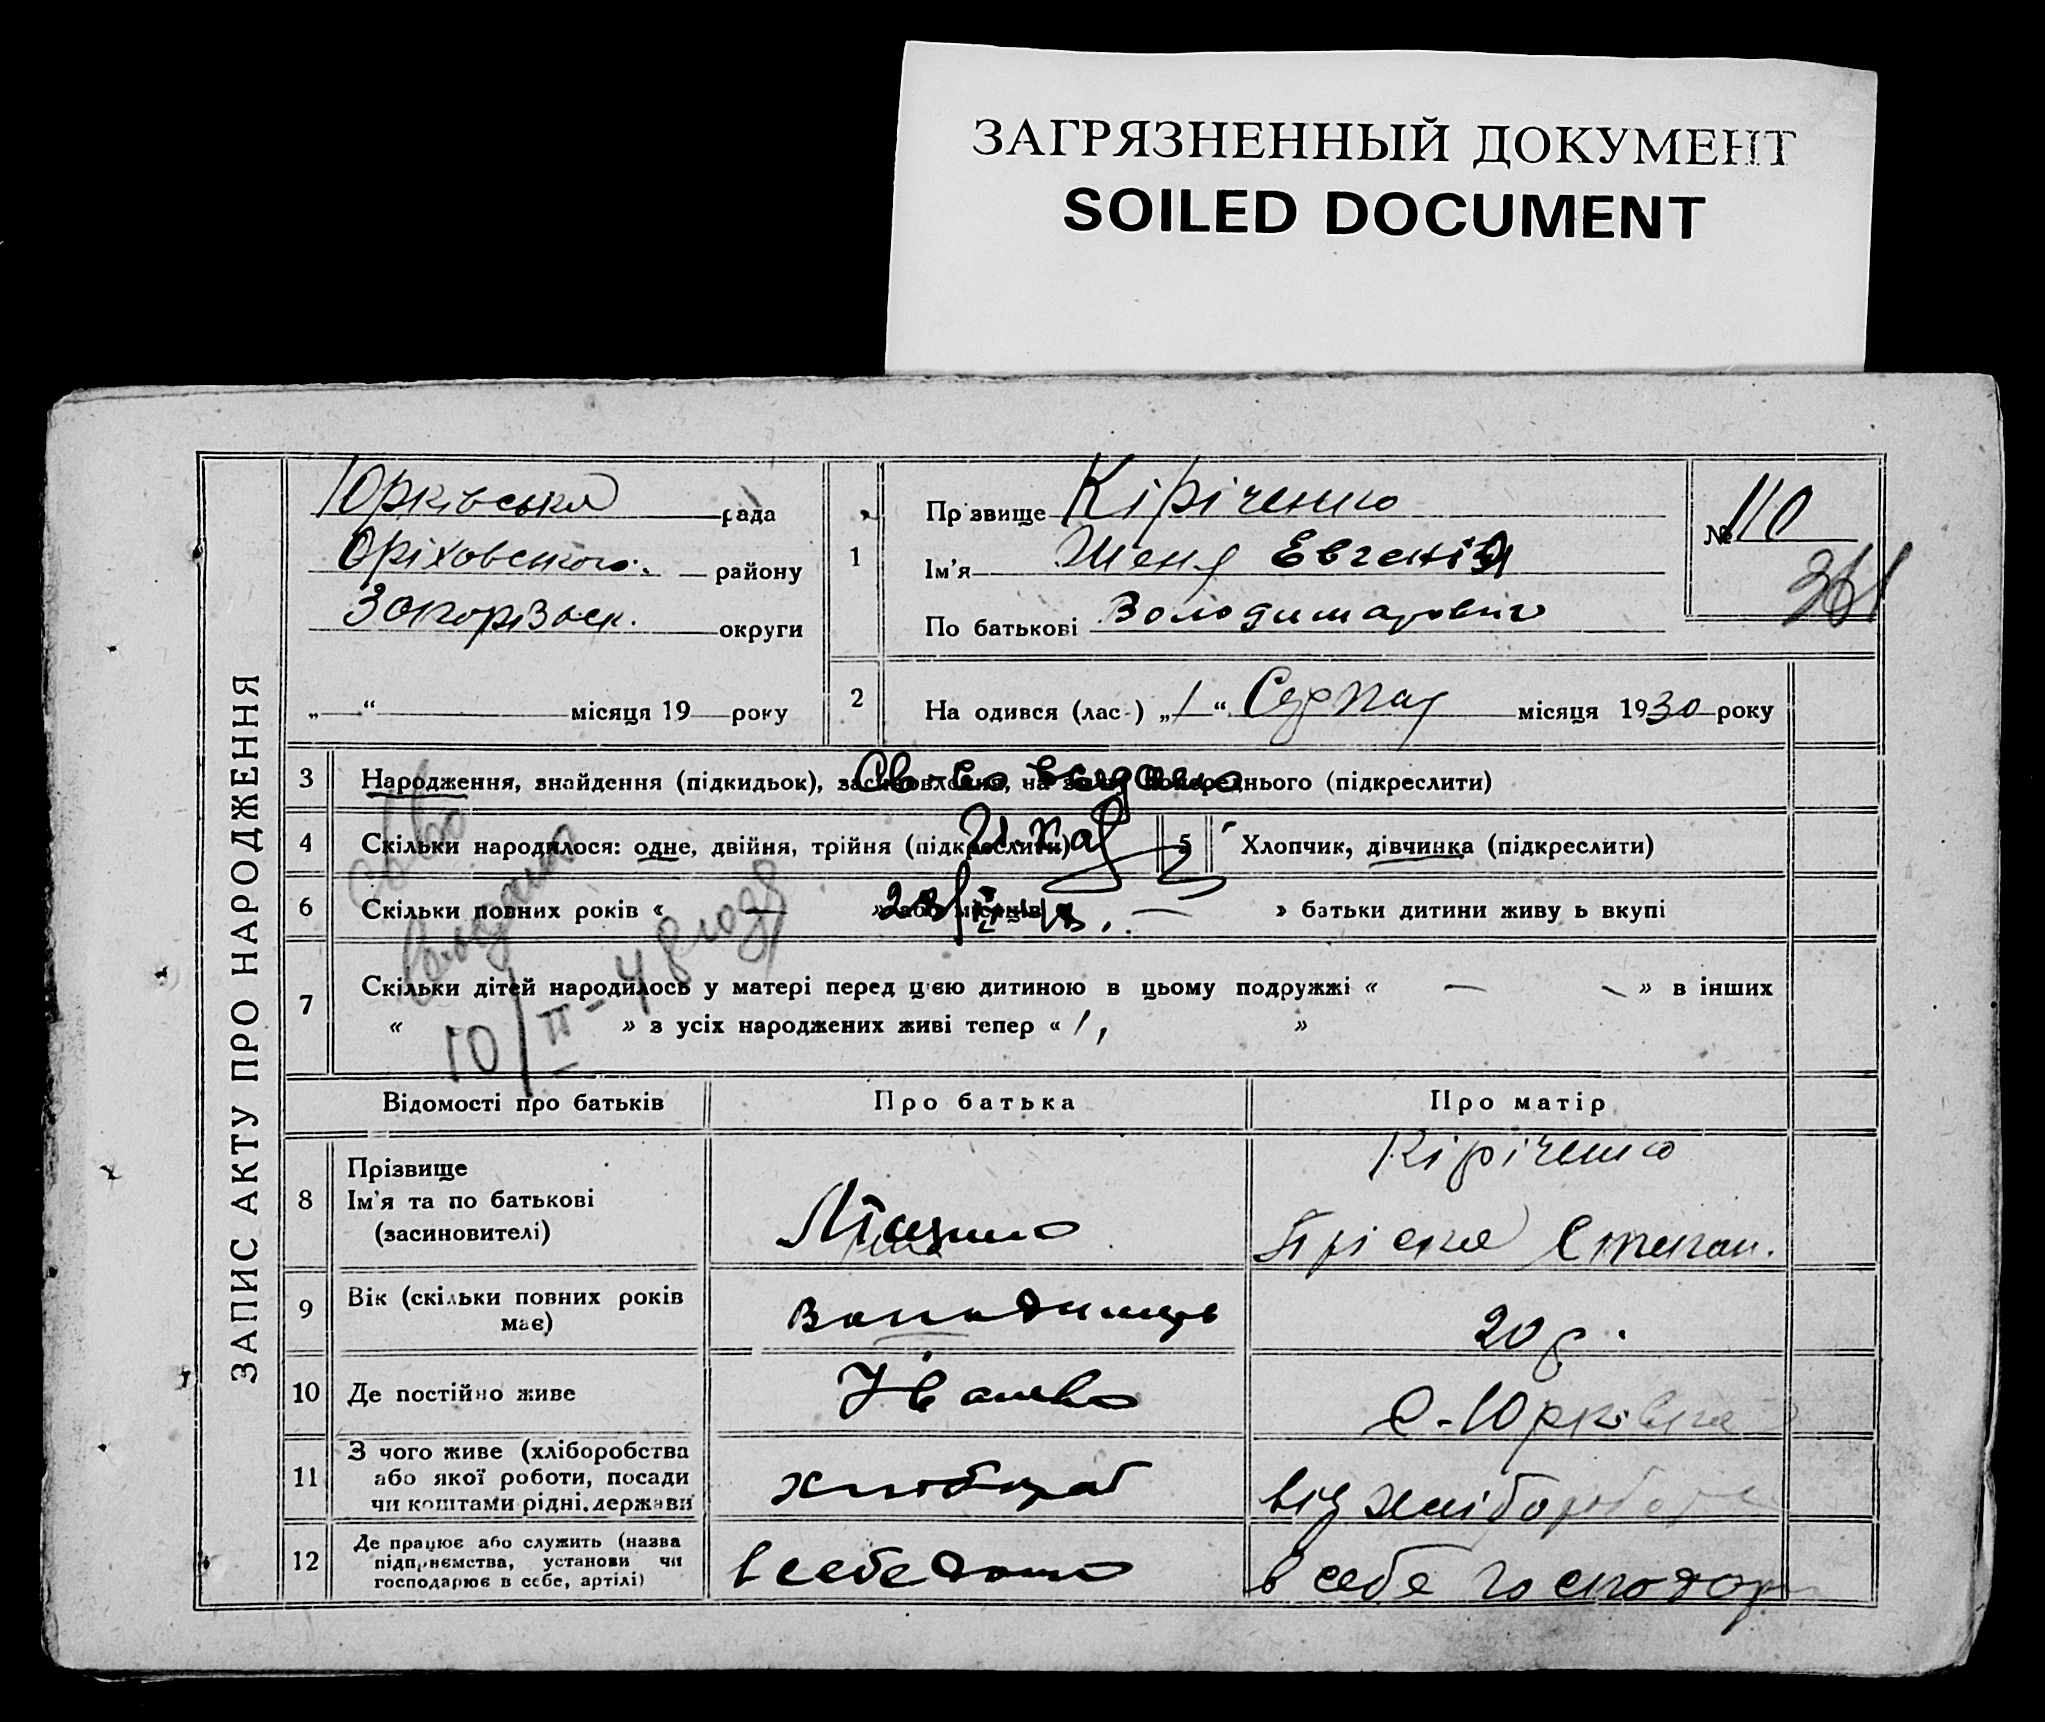 ЗАГРЯЗНЕННЫЙ ДОКУМЕНТ
SOILED DOCUMENT
ЗАПИС АКТУ ПРО НАРОДЖЕННЯ
Юрківська рада
Оріховського району
Запорізьк. округи
„ “ місяця 19 року
1
Прізвище Кіріченко
Ім'я Женя Евгенія
По батькові Володимирович
№ 110
2
На одився (лас-) „1“ Серпня місяця 1930 року
3 Народження, знайдення (підкидьок), засиновлення, на заяву попереднього (підкреслити)
Св-во выдано
4 Скільки народилося: одне, двійня, трійня (підкреслити)
5 Хлопчик, дівчинка (підкреслити)
6 Скільки повних років « — » або місяців « — » батьки дитини живу ь вкупі
свво
выдано
10/II-48 года
7 Скільки дітей народилось у матері перед цією дитиною в цьому подружжі « — » в інших
« » з усіх народжених живі тепер « 1, »
Відомості про батьків
Про батька
Про матір
8 Прізвище
Ім'я та по батькові
(засиновителі)
Кіріченко
Пріська Степан.
9 Вік (скільки повних років
має)
Володимир
20 р.
10 Де постійно живе
Іванов
с. Юрківка
11 З чого живе (хліборобства
або якої роботи, посади
чи коштами рідні, держави
хлібороб
від хліборобства
12 Де працює або служить (назва
підприємства, установи чи
господарює в себе, артілі)
в себе дома
в себе господар